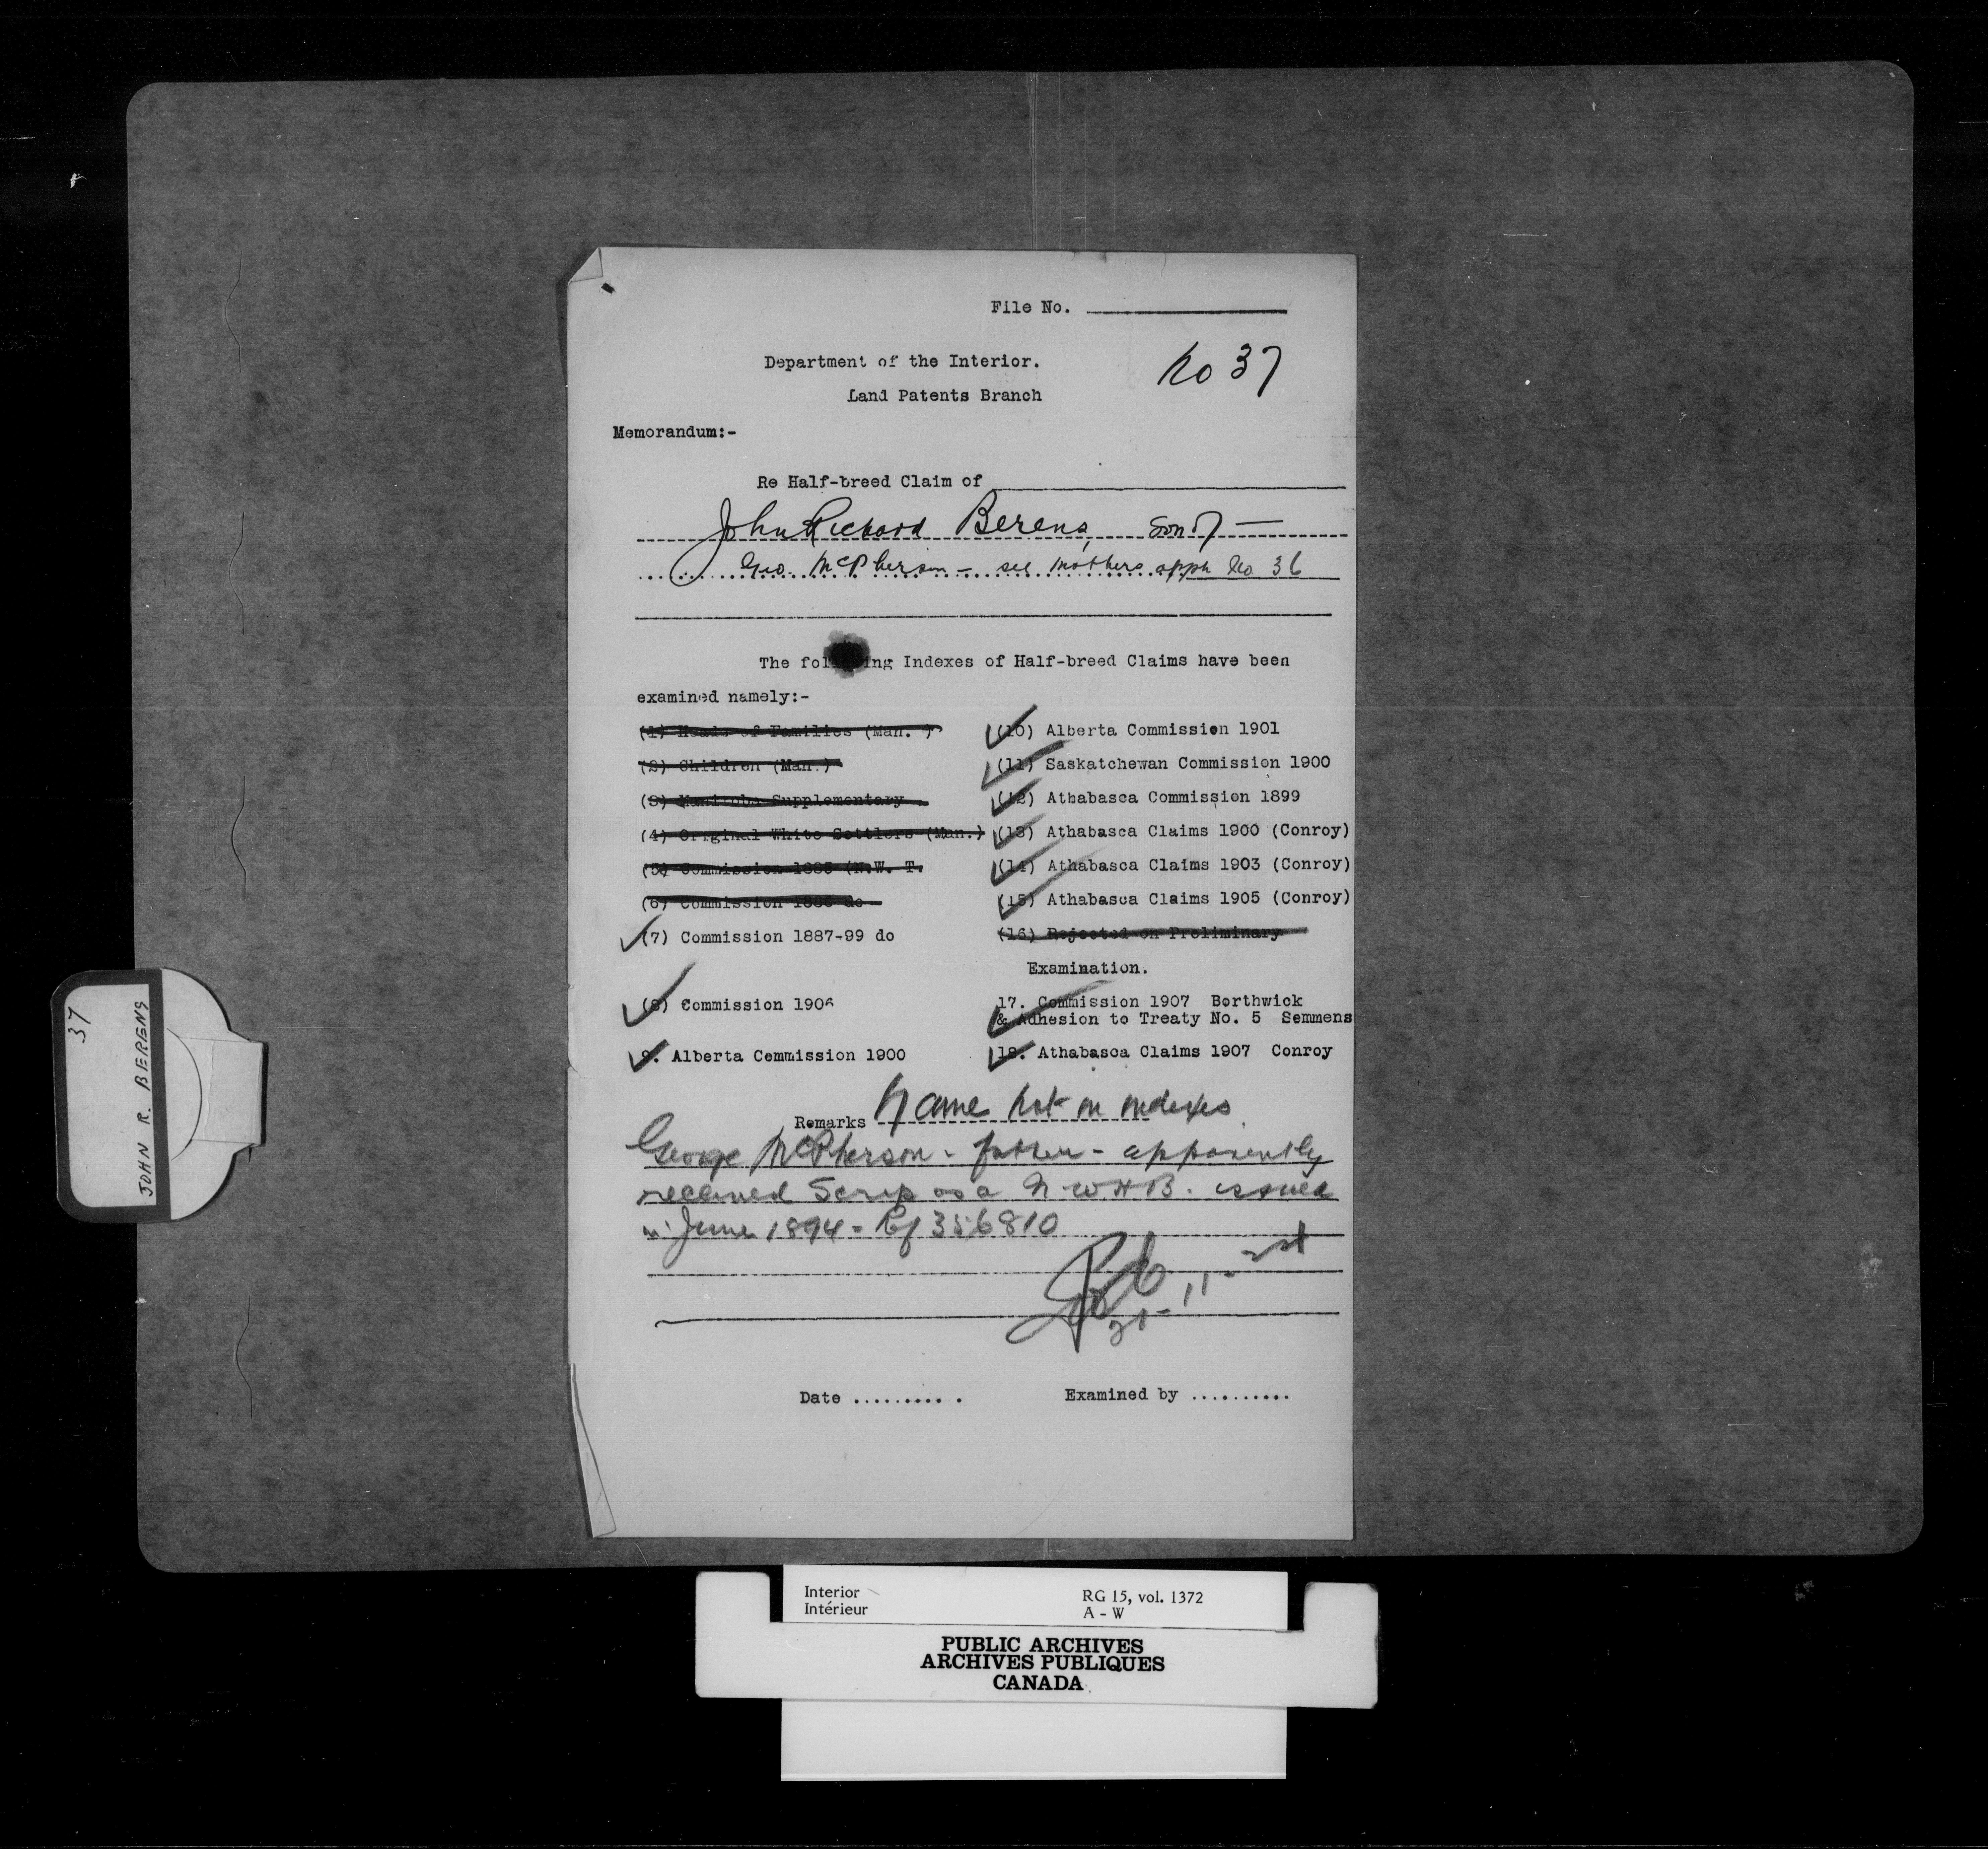 File No.
No 37
Department of the Interior.
Land Patents Branch
Memorandum:-
Re Half-breed Claim of
John Richard Berens, son of —
Geo. McPherson - see mothers appn No 36
The following Indexes of Half-breed Claims have been
examined namely:-
(1) Heads of Families (Man. )
(2) Children (Man.)
(3) Manitoba Supplementary
(4) Original White Settlers (Man.)
(5) Commission 1885 (N.W. T.
(6) Commission 1886 do
(7) Commission 1887-99 do
(8) Commission 1906
9. Alberta Commission 1900
(10) Alberta Commission 1901
(11) Saskatchewan Commission 1900
(12) Athabasca Commission 1899
(13) Athabasca Claims 1900 (Conroy)
(14) Athabasca Claims 1903 (Conroy)
(15) Athabasca Claims 1905 (Conroy)
(16) Rejected on Preliminary
Examination.
17. Commission 1907 Borthwick
& Adhesion to Treaty No. 5 Semmens
18. Athabasca Claims 1907 Conroy
Remarks Name not in indexes
George McPherson - father - apparently
received Scrip as a N.W.H.B. issued
in June 1894 - Rf 356810
Date ..........
Examined by ..........
37
JOHN R. BERENS
Interior
Intérieur
RG 15, vol. 1372
A - W
PUBLIC ARCHIVES
ARCHIVES PUBLIQUES
CANADA